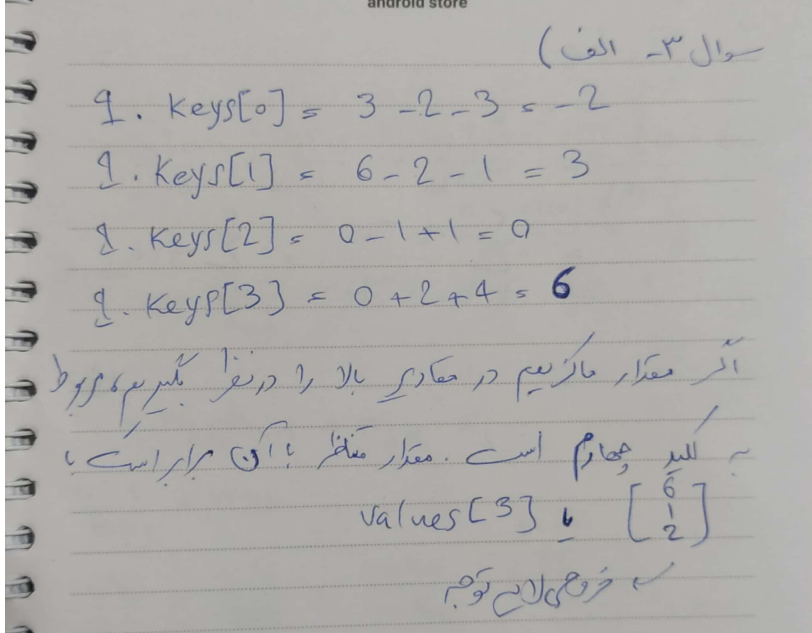 android store
سوال ۳- الف)
q. Keys[0] = 3 - 2 - 3 = -2
q. Keys[1] = 6 - 2 - 1 = 3
q. Keys[2] = 0 - 1 + 1 = 0
q. Keys[3] = 0 + 2 + 4 = 6
اگر مقدار ماکزیمم در مقادیر بالا را در نظر بگیریم، مربوط
به کلید چهارم است. مقدار متناظر با آن برابر است با
values[3] یا [6 1 2]
خروجی لایه توجه